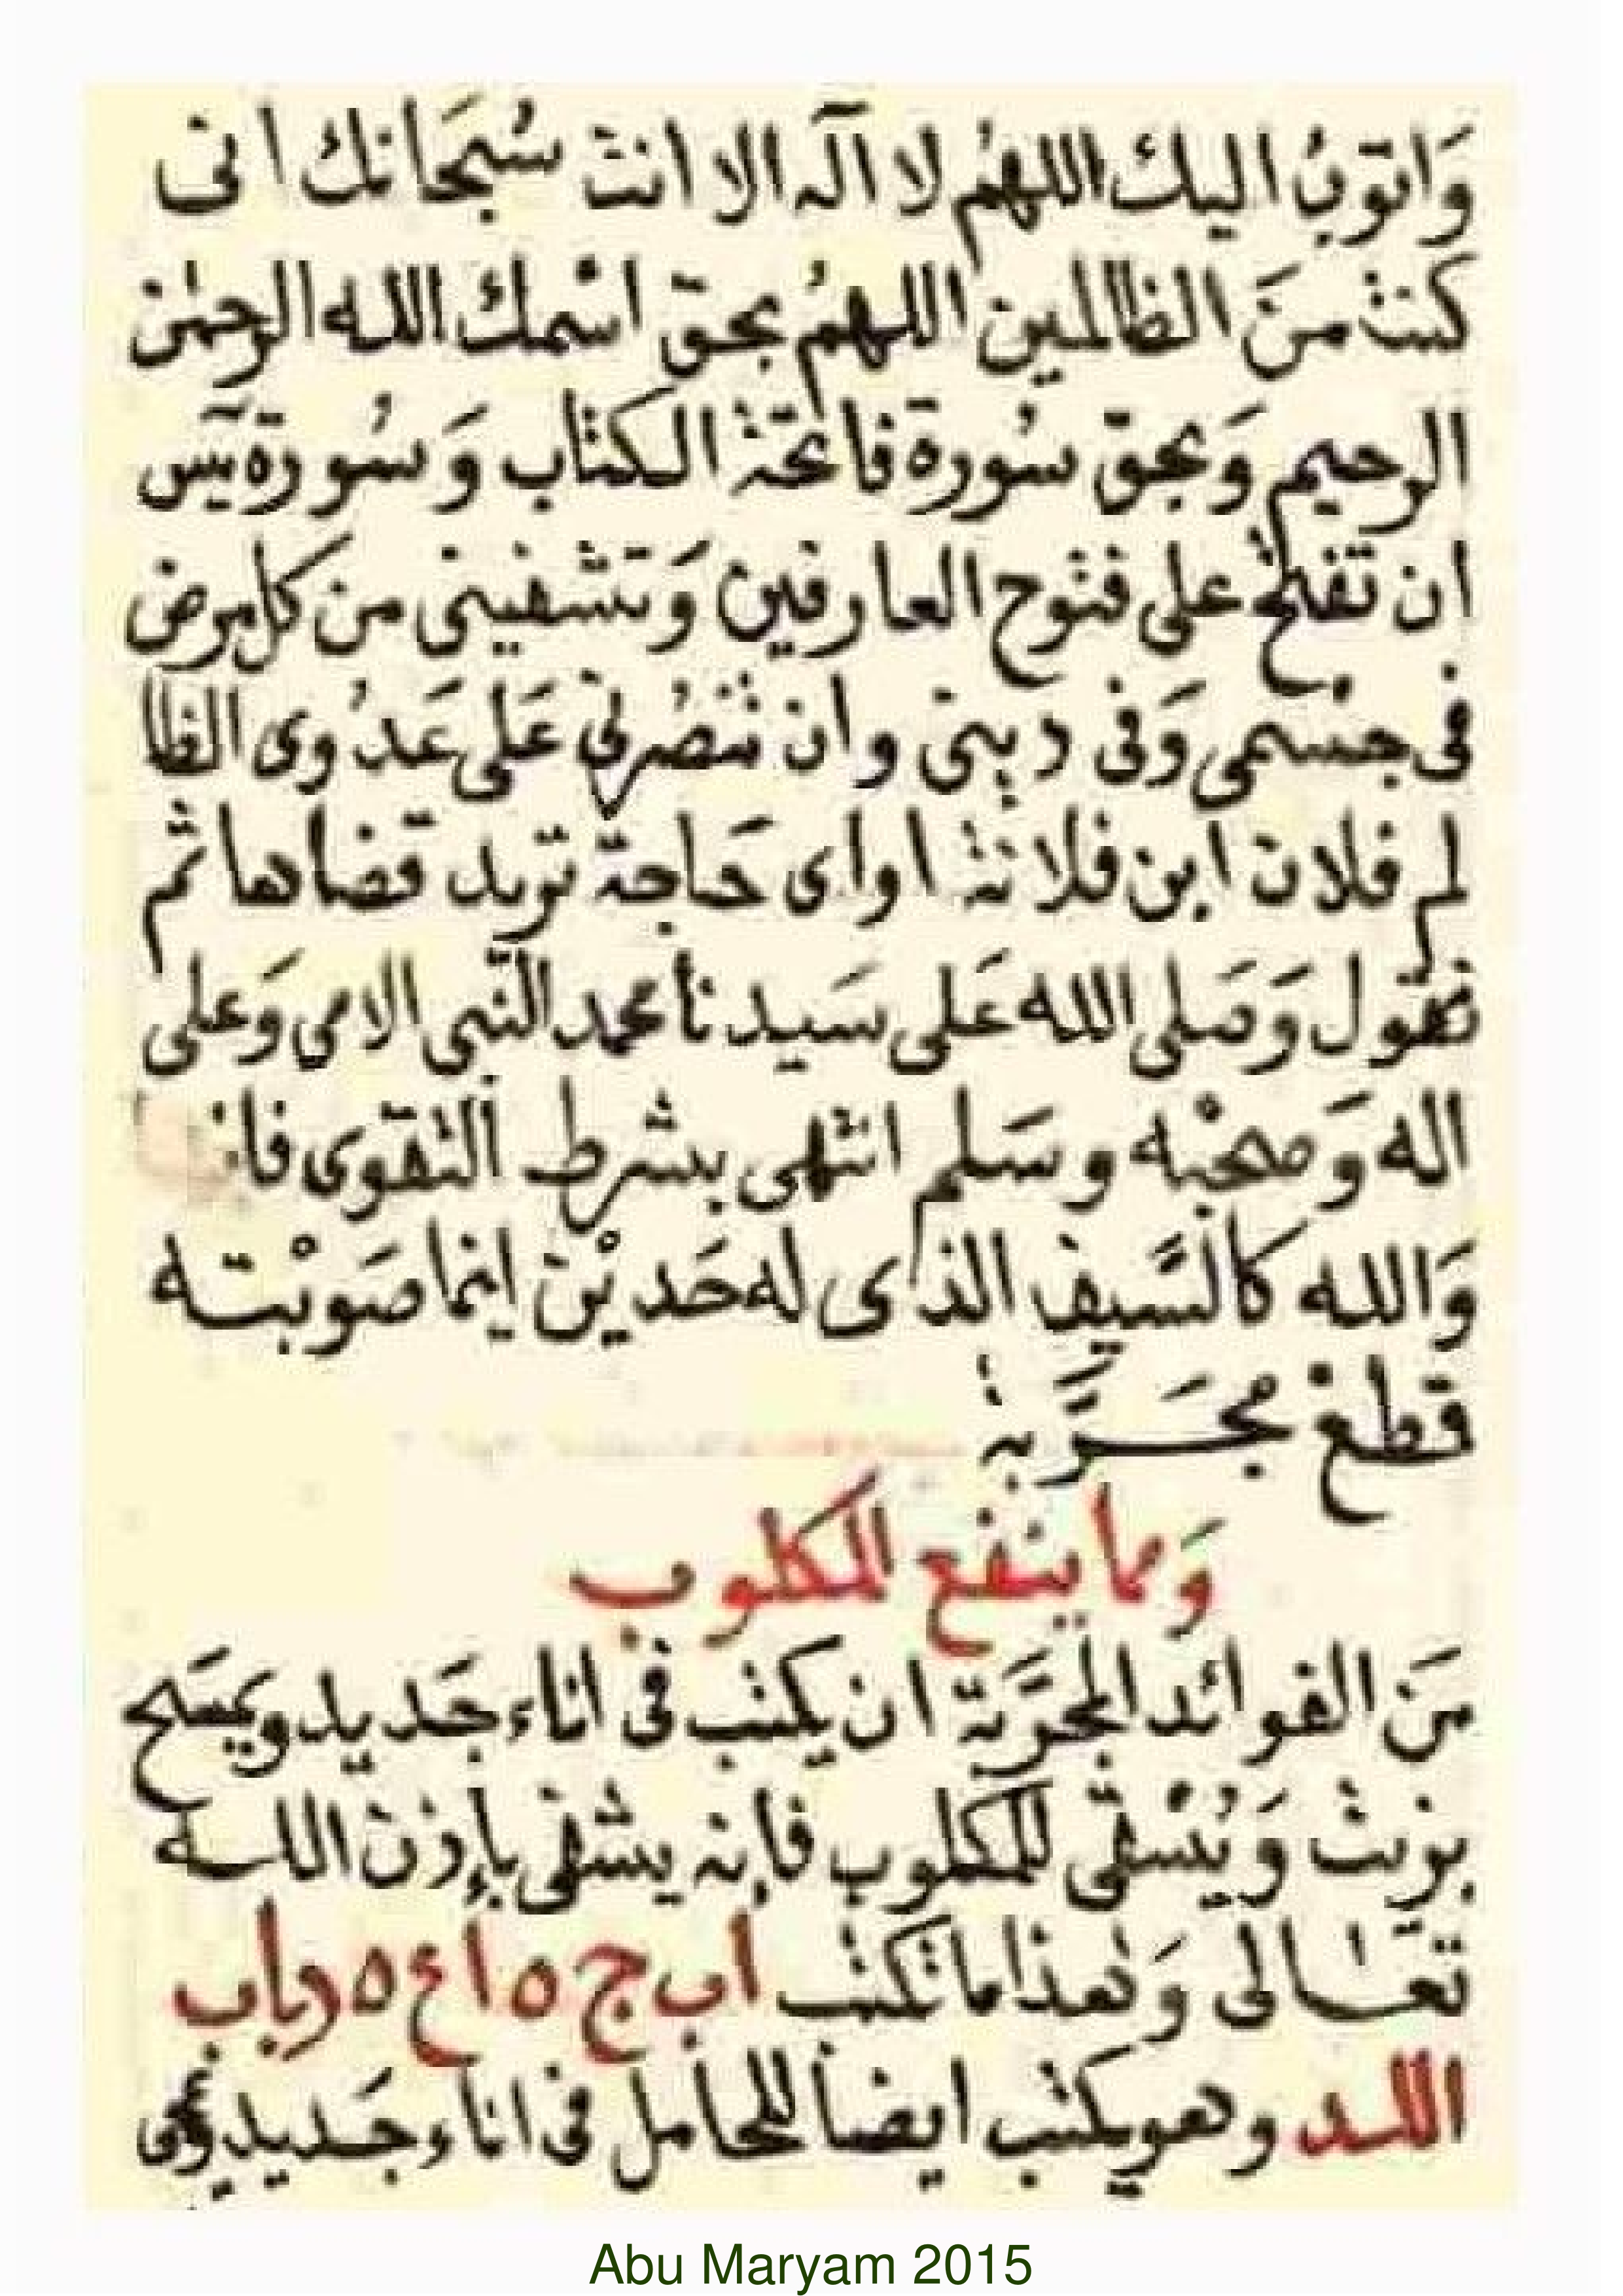 وَاتوبُ اليك اللهمُ لا آله الا انت سُبحَانك انى
كنت منَ الظالمين اللهمُ بحق اسْمك الله الرحمن
الرحيم وَبحق سُورة فاتحة الكتاب وَسُورة يس
ان تفتح على فتوح العارفين وَتشفينى من كل مرض
فى جسمى وَفى دينى وان تنصُرنى عَلى عَدُوى الظا
لم فلان ابن فلانة او اى حَاجة تريد قضاها ثم
تقول وَصَلى الله عَلى سَيدنا محمد النبى الامى وَعلى
اله وَصحْبه وسَلم انتهى بشرط التقوى فانه
وَالله كالسَّيف الذى له حَديْن اينما صَوبْته
قطع مجَرَّبة
وَمما ينفع المكلوب
منَ الفوائد المجَرَّبة ان يكتب فى اناء جَديد ويمسَح
بزيت وَيُسْقى للمكلوب فانه يشفى بإذن اللـه
تعَالى وَهذا ما تكتب اب ج ٥ ا ع ٥ د باب
اللد وهو يكتب ايضاً للحامل فى اناء جَديد ويمحى
Abu Maryam 2015